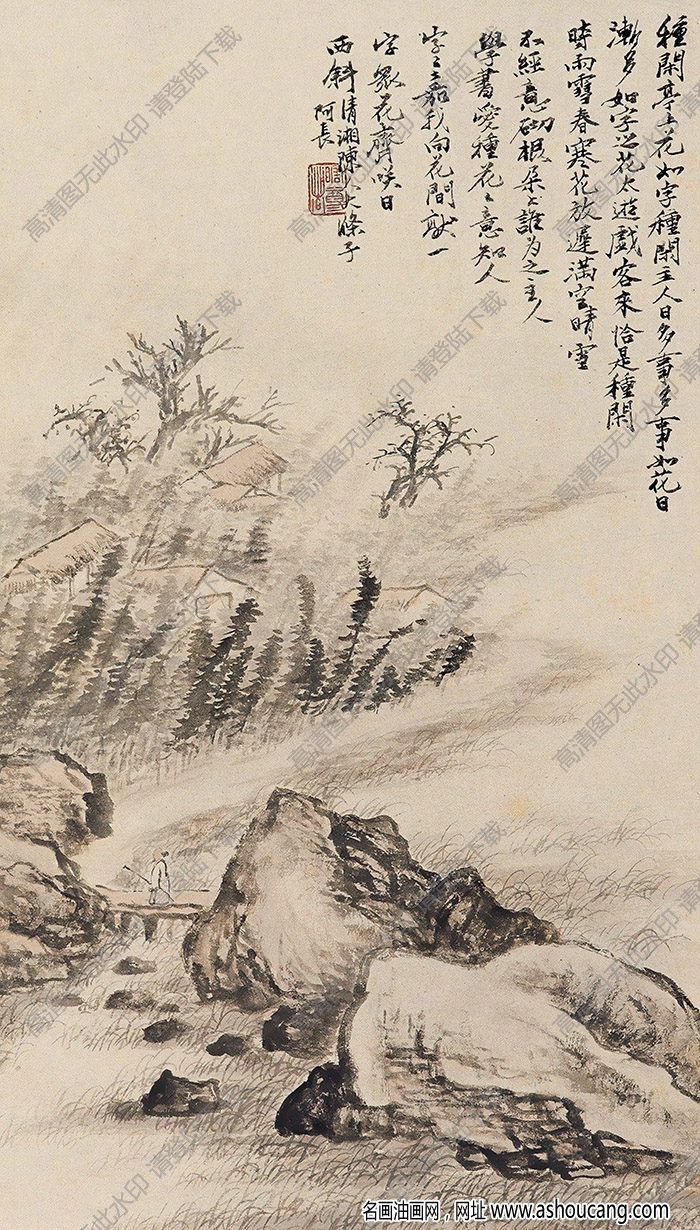 種閑亭上花如字種閑主人日多事多事如花日
漸多如字之花太遊戲客來恰是種閑
時雨雪春寒花放遲滿空晴雪
不經意砌根朵朵誰為之主人
學書愛種花之意知人
字之嘉我向花間獻一
字眾花齊咲日
西斜清湘陳人大滌子
阿長
高清图无此水印 请登陆下载
名画油画网，网址 www.ashoucang.com